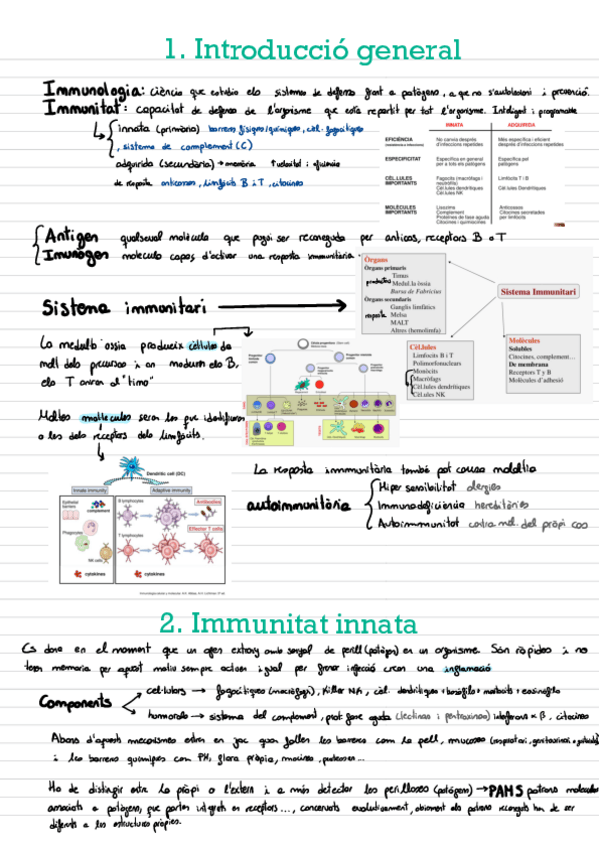 1. Introducció general
Immunologia: ciència que estudia els sistemes de defensa front a patògens, a que no s'autolesioni i prevenció.
Immunitat: capacitat de defensa de l'organisme que està repartit per tot l'organisme. Inteligent i programable
innata (primària) barreres físiques/químiques, cèl. fagocítiques
, sistema de complement (C)
adquirida (secundària) → memòria ↑ velocitat i eficiència
de resposta anticossos, limfòcits B i T, citocines
INNATA ADQUIRIDA
EFICIÈNCIA
No canvia després d'infeccions repetides
Més específica i eficient després d'infeccions repetides
ESPECIFICITAT
Específica en general per a tots els patògens
Específica pel patogen
CÈL.LULES IMPORTANTS
Fagocits (macròfags i neutròfils)
Cèl.lules dendrítiques
Cèl.lules NK
Limfòcits T i B
Cèl.lules Dendrítiques
MOLÈCULES IMPORTANTS
Lisozims
Complement
Proteïnes de fase aguda
Citocines i quimiocines
Anticossos
Citocines secretades per limfòcits
Antigen qualsevol molècula que pugui ser reconeguda per anticos, receptors B o T
Imunògen molècula capaç d'activar una resposta immunitària
Sistema immunitari
Òrgans
Òrgans primaris
Timus
Medul.la òssia
Bursa de Fabricius
Òrgans secundaris
Ganglis limfàtics
Melsa
MALT
Altres (hemolimfa)
productors
resposta
Sistema Immunitari
Cèl.lules
Limfòcits B i T
Polimorfonuclears
Monòcits
Macròfags
Cèl.lules dendrítiques
Cèl.lules NK
Molècules
Solubles
Citocines, complement…
De membrana
Receptors T y B
Molècules d'adhesió
La medul·la òssia produeix cèl·lules
els T aniran al "timo"
Moltes molècules seran les que identifiquen
o les dels receptors dels limfòcits.
Dendritic cell (DC)
Innate immunity
Adaptive immunity
Epithelial barriers
complement
Phagocytes
NK cells
cytokines
B lymphocytes
Antibodies
T lymphocytes
Effector T cells
cytokines
La resposta immunitària també pot causa malaltia
autoimmunitària
Hiper sensibilitat alergies
Immunodeficiència hereditàries
Autoimmunitat contra mol. del propi cos
2. Immunitat innata
Es dona en el moment que un agen extrany amb senyal de perill (patògen) en un organisme. Són ràpides i no
tenen memoria per aquest motiu sempre actuen igual per frenar infecció creen una inflamació
Components
cel·lulars → fagocítiques (macròfags), Killer NK, cèl. dendrítiques + basòfils + mastòcits + eosinòfils
humorals → sistema del complement, prot. fase aguda (lectines i pentraxines) interferons α β, citocines
Abans d'aquests mecanismes entren en joc quan fallen les barreres com la pell, mucoses
i les barreres químiques com PH, flora pròpia, mucines, proteases...
Ha de distingir entre lo propi o l'extern i a més detectar les perilloses (patògens) → PAMS patrons moleculars
associats a patògens, que porten integrats en receptors..., conservats evolutivament, obviament els patrons reconeguts han de ser
diferents a les estructures pròpies.